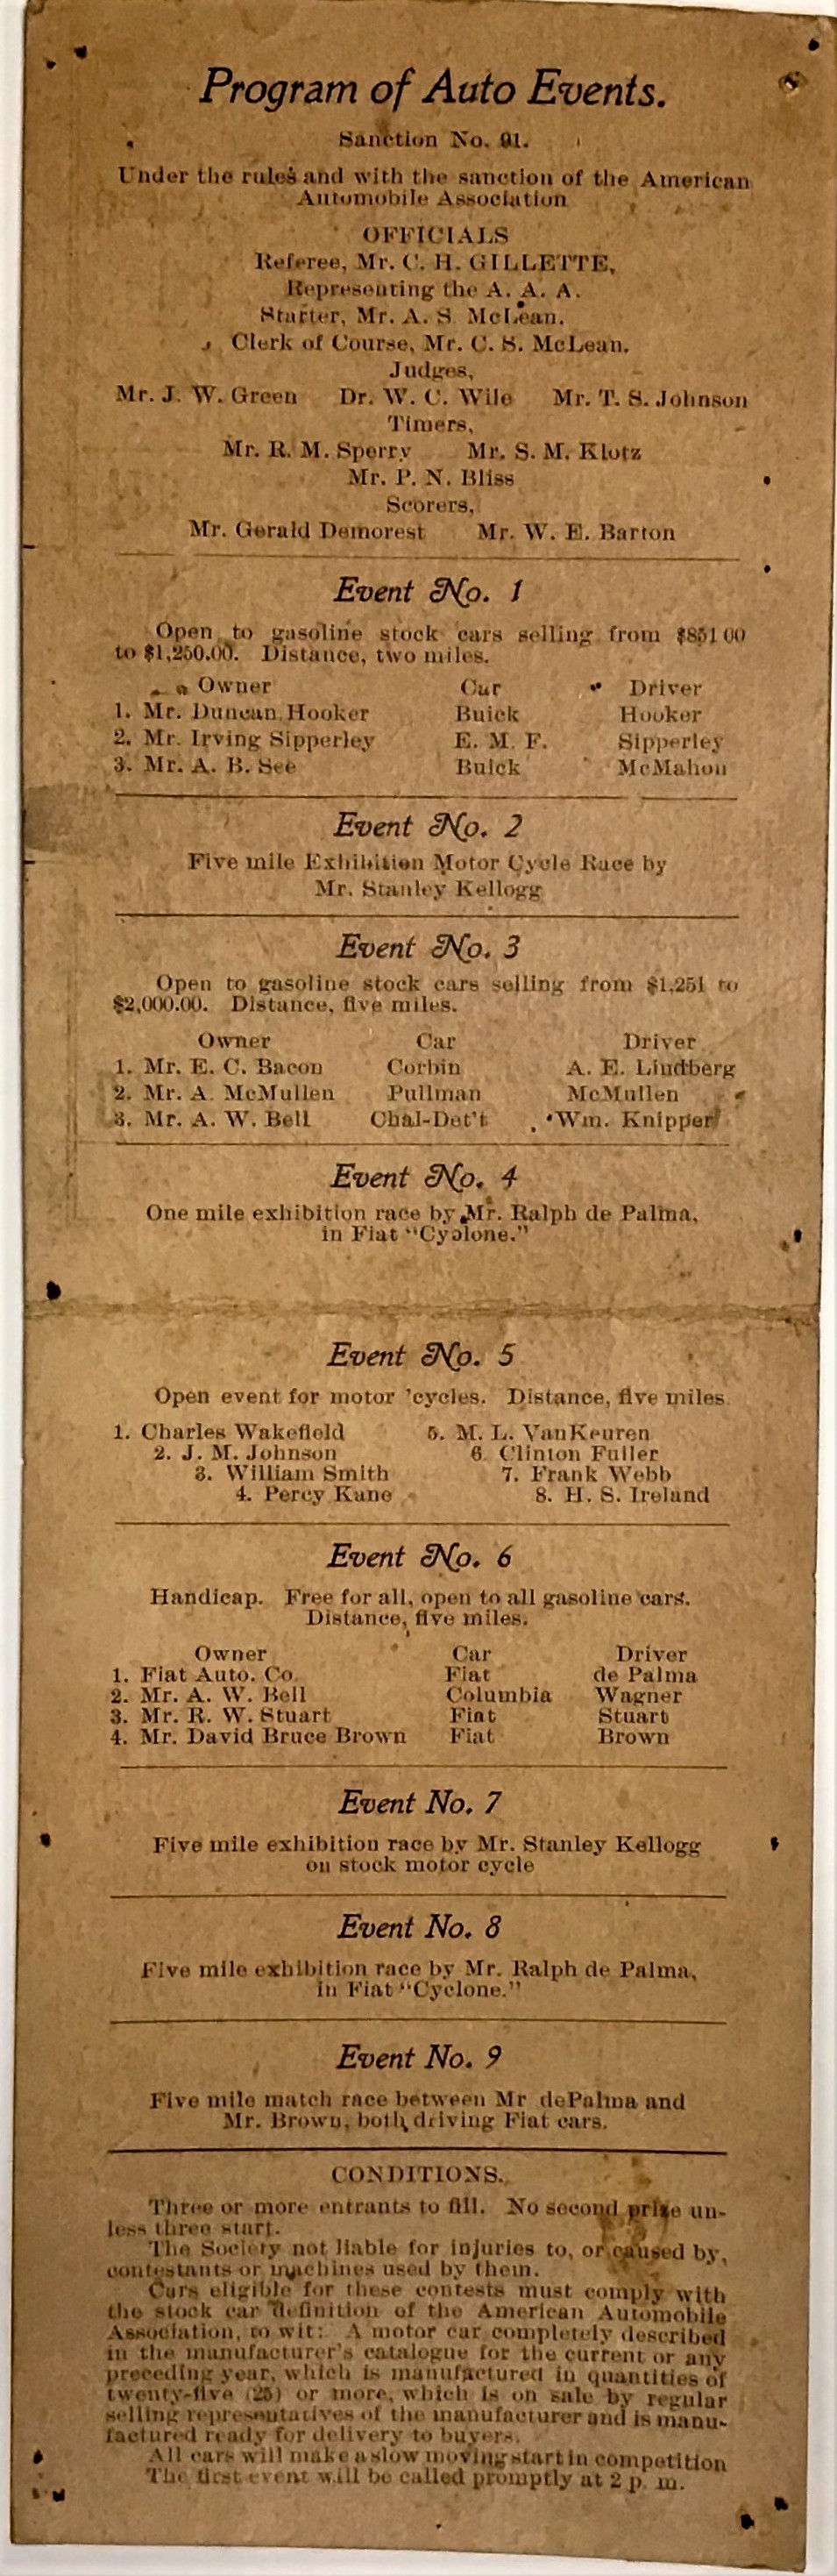 Program of Auto Events.
Sanction No. 91.
Under the rules and with the sanction of the American
Automobile Association
OFFICIALS
Referee, Mr. C. H. GILLETTE,
Representing the A. A. A.
Starter, Mr. A. S. McLean.
Clerk of Course, Mr. C. S. McLean.
Judges,
Mr. J. W. Green Dr. W. C. Wile Mr. T. S. Johnson
Timers,
Mr. R. M. Sperry Mr. S. M. Klotz
Mr. P. N. Bliss
Scorers,
Mr. Gerald Demorest Mr. W. E. Barton
Event No. 1
Open to gasoline stock cars selling from $851 00
to $1,250.00. Distance, two miles.
Owner Car Driver
1. Mr. Duncan Hooker Buick Hooker
2. Mr. Irving Sipperley E. M. F. Sipperley
3. Mr. A. B. See Buick McMahon
Event No. 2
Five mile Exhibition Motor Cycle Race by
Mr. Stanley Kellogg
Event No. 3
Open to gasoline stock cars selling from $1,251 to
$2,000.00. Distance, five miles.
Owner Car Driver
1. Mr. E. C. Bacon Corbin A. E. Lindberg
2. Mr. A. McMullen Pullman McMullen
3. Mr. A. W. Bell Chal-Det't Wm. Knipper
Event No. 4
One mile exhibition race by Mr. Ralph de Palma,
in Fiat "Cyclone."
Event No. 5
Open event for motor 'cycles. Distance, five miles
1. Charles Wakefield 5. M. L. VanKeuren
2. J. M. Johnson 6. Clinton Fuller
3. William Smith 7. Frank Webb
4. Percy Kane 8. H. S. Ireland
Event No. 6
Handicap. Free for all, open to all gasoline cars.
Distance, five miles.
Owner Car Driver
1. Fiat Auto. Co. Fiat de Palma
2. Mr. A. W. Bell Columbia Wagner
3. Mr. R. W. Stuart Fiat Stuart
4. Mr. David Bruce Brown Fiat Brown
Event No. 7
Five mile exhibition race by Mr. Stanley Kellogg
on stock motor cycle
Event No. 8
Five mile exhibition race by Mr. Ralph de Palma,
in Fiat "Cyclone."
Event No. 9
Five mile match race between Mr dePalma and
Mr. Brown, both driving Fiat cars.
CONDITIONS.
Three or more entrants to fill. No second prize un-
less three start.
The Society not liable for injuries to, or caused by,
contestants or machines used by them.
Cars eligible for these contests must comply with
the stock car definition of the American Automobile
Association, to wit: A motor car completely described
in the manufacturer's catalogue for the current or any
preceding year, which is manufactured in quantities of
twenty-five (25) or more, which is on sale by regular
selling representatives of the manufacturer and is manu-
factured ready for delivery to buyers.
All cars will make a slow moving start in competition
The first event will be called promptly at 2 p. m.